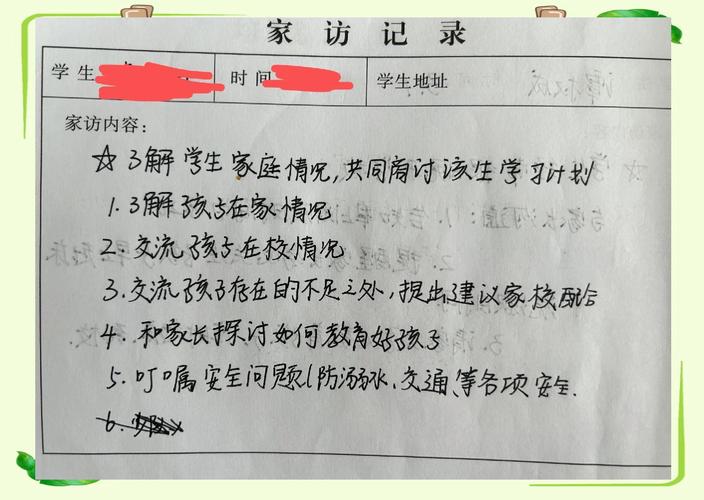 家访记录
学生 时间 学生地址
家访内容：
☆了解学生家庭情况，共同商讨该生学习计划
1.了解孩子在家情况
2.交流孩子在校情况
3.交流孩子存在的不足之处，提出建议家校配合
4.和家长探讨如何教育好孩子
5.叮嘱安全问题(防溺水、交通、等各项安全.
6.